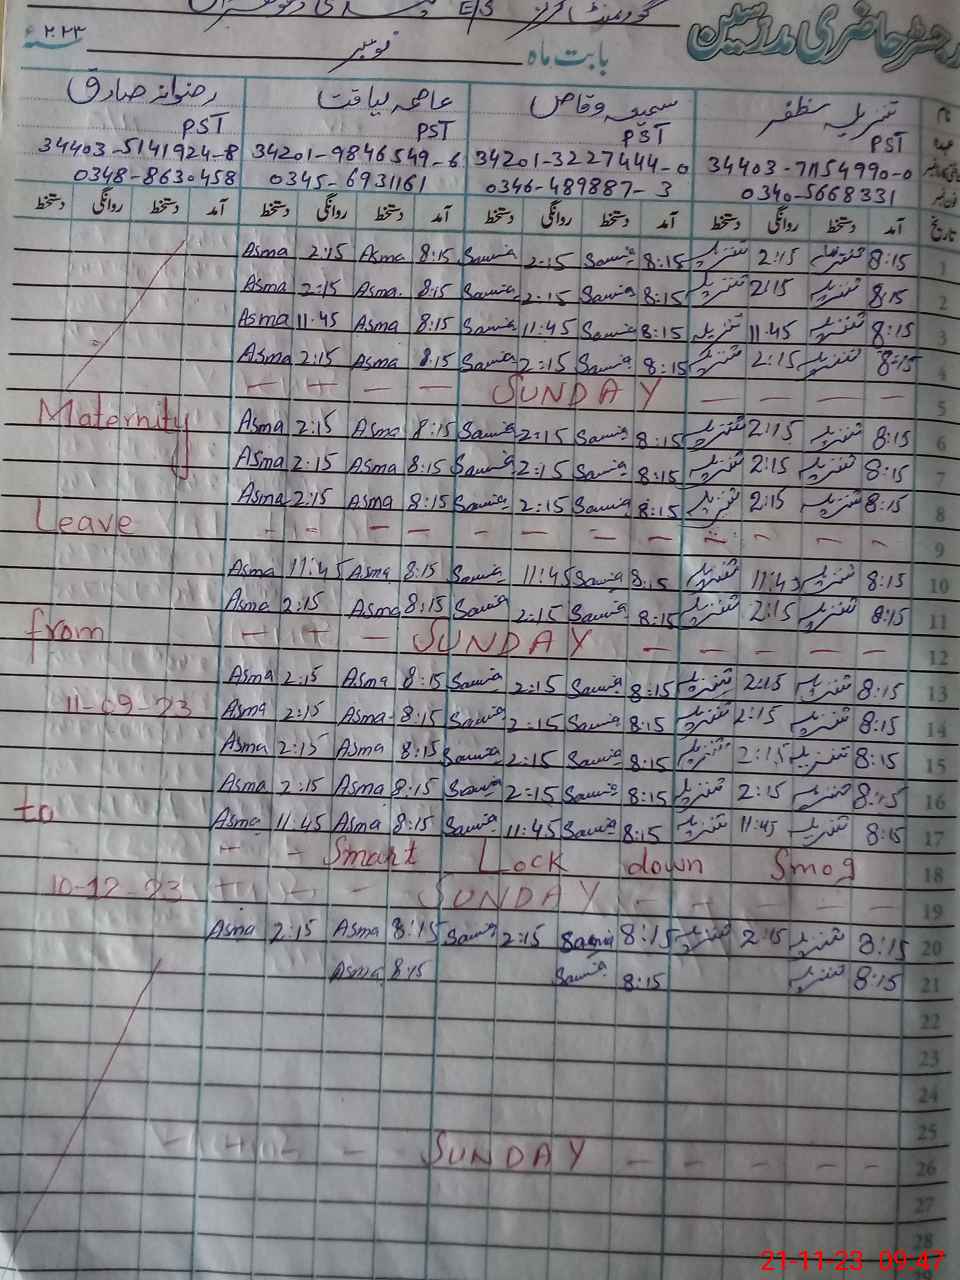 رجسٹر حاضری مدرسین
گورنمنٹ گرلز E/S
بابت ماہ نومبر ۲۰۲۳ء
نام تنزیلہ مظفر سمیعہ وقاص عاصمہ لیاقت رضوانہ صادق
عہدہ PST PST PST PST
34403-7115499-0 34201-3227444-0 34201-9846549-6 34403-5141924-8
فون نمبر 0340-5668331 0346-489887-3 0345-6931161 0348-8630458
تاریخ آمد دستخط روانگی دستخط آمد دستخط روانگی دستخط آمد دستخط روانگی دستخط آمد دستخط روانگی دستخط
1 8:15 تنزیلہ 2:15 تنزیلہ 8:15 Samia 2:15 Samia 8:15 Asma 2:15 Asma
2 8:15 تنزیلہ 2:15 تنزیلہ 8:15 Samia 2:15 Samia 8:15 Asma 2:15 Asma
3 8:15 تنزیلہ 11:45 تنزیلہ 8:15 Samia 11:45 Samia 8:15 Asma 11:45 Asma
4 8:15 تنزیلہ 2:15 تنزیلہ 8:15 Samia 2:15 Samia 8:15 Asma 2:15 Asma
5 SUNDAY
6 8:15 تنزیلہ 2:15 تنزیلہ 8:15 Samia 2:15 Samia 8:15 Asma 2:15 Asma Maternity
7 8:15 تنزیلہ 2:15 تنزیلہ 8:15 Samia 2:15 Samia 8:15 Asma 2:15 Asma
8 8:15 تنزیلہ 2:15 تنزیلہ 8:15 Samia 2:15 Samia 8:15 Asma 2:15 Asma
9 Leave
10 8:15 تنزیلہ 11:45 تنزیلہ 8:15 Samia 11:45 Samia 8:15 Asma 11:45 Asma
11 8:15 تنزیلہ 2:15 تنزیلہ 8:15 Samia 2:15 Samia 8:15 Asma 2:15 Asma
12 SUNDAY from
13 8:15 تنزیلہ 2:15 تنزیلہ 8:15 Samia 2:15 Samia 8:15 Asma 2:15 Asma
14 8:15 تنزیلہ 2:15 تنزیلہ 8:15 Samia 2:15 Samia 8:15 Asma 2:15 Asma 11-09-23
15 8:15 تنزیلہ 2:15 تنزیلہ 8:15 Samia 2:15 Samia 8:15 Asma 2:15 Asma
16 8:15 تنزیلہ 2:15 تنزیلہ 8:15 Samia 2:15 Samia 8:15 Asma 2:15 Asma
17 8:15 تنزیلہ 11:45 تنزیلہ 8:15 Samia 11:45 Samia 8:15 Asma 11:45 Asma to
18 Smart Lock down Smog
19 SUNDAY 10-12-23
20 8:15 تنزیلہ 2:15 تنزیلہ 8:15 Samia 2:15 Samia 8:15 Asma 2:15 Asma
21 8:15 تنزیلہ 8:15 Samia 8:15 Asma
22
23
24
25
26 SUNDAY
27
28
21-11-23 09:47